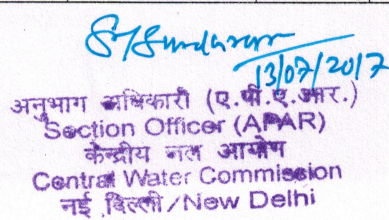 13/07/2017
अनुभाग अधिकारी (ए.पी.ए.आर.)
Section Officer (APAR)
केन्द्रीय जल आयोग
Central Water Commission
नई दिल्ली/New Delhi